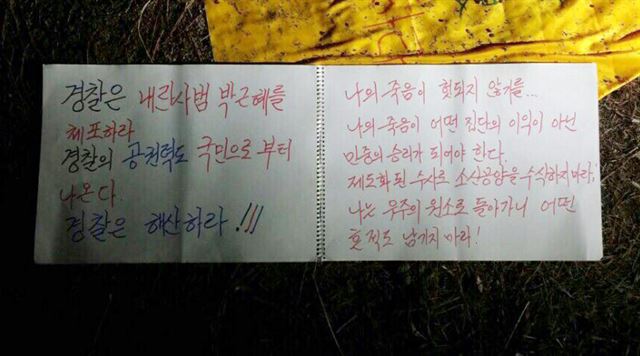 경찰은 내란사범 박근혜를
체포하라
경찰의 공권력도 국민으로 부터
나온다.
경찰은 해산하라!!!
나의 죽음이 헛되지 않기를...
나의 죽음이 어떤 집단의 이익이 아닌
민중의 승리가 되어야 한다.
제도화 된 수사로 소신공양을 수식하지 마라,
나는 우주의 원소로 돌아가니 어떤
흔적도 남기지 마라!